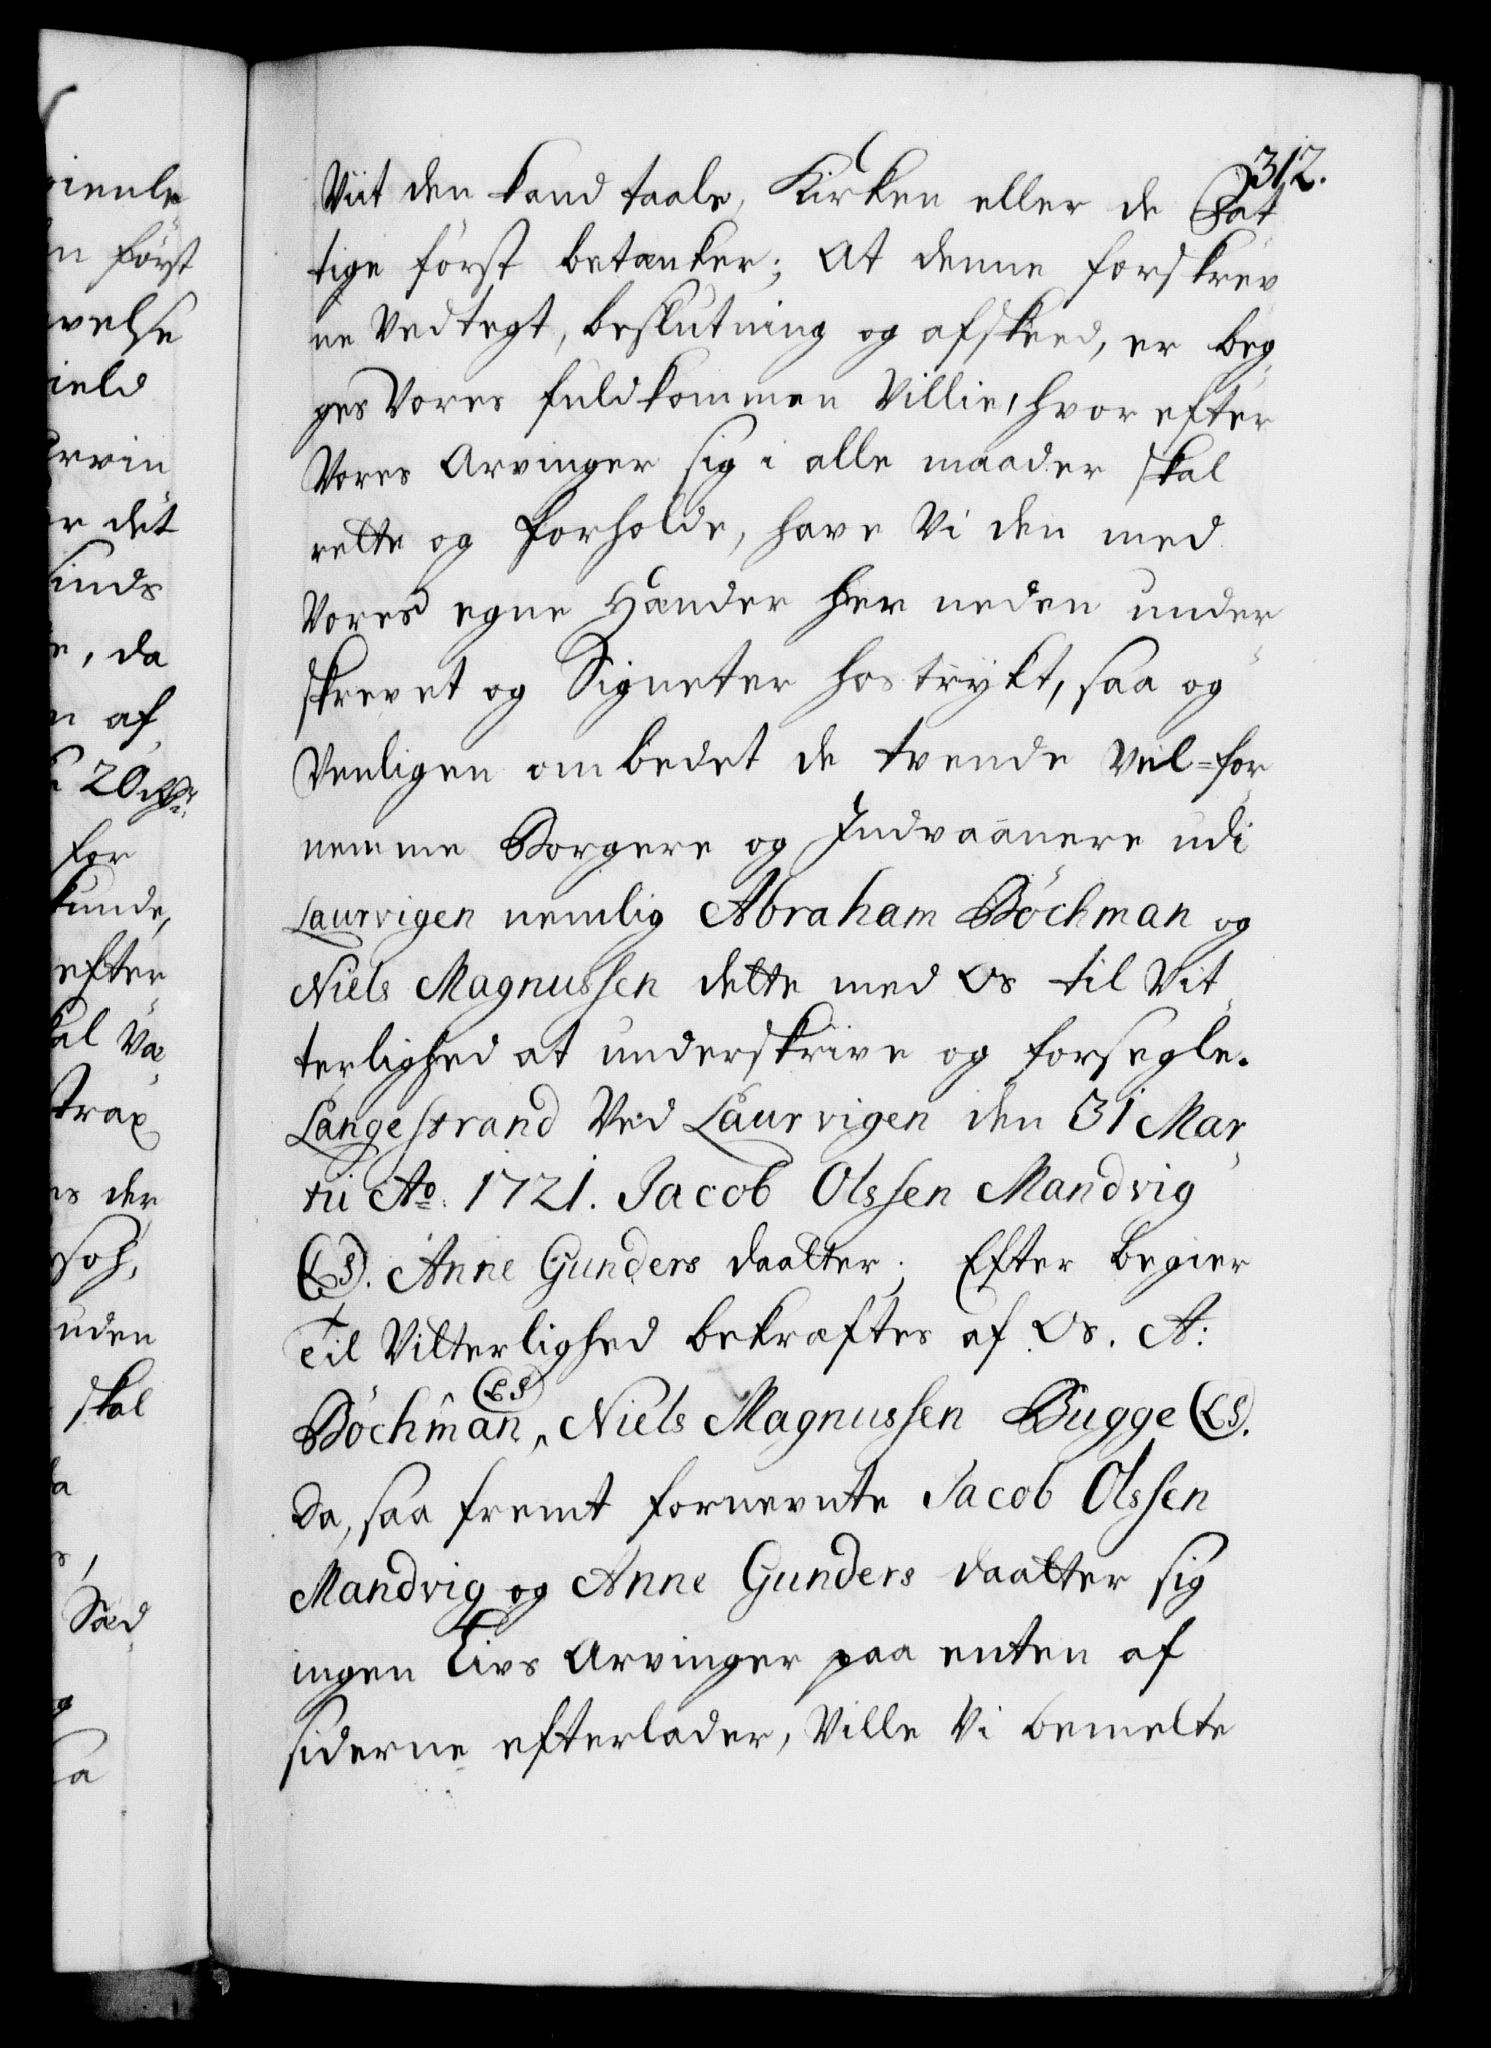 312.
Viit den kand taale, Kirken eller de Fat
tige först betænker; At denne forskrev
ne Vedtegt, beslutning og afskeed, er beg
ges Vores fuldkommen Villie, hvor efter
Vores Arvinger sig i alle maader skal
rette og forholde, have Vi den med
Vores egne Hænder her neden under
skrevet og Signeter hos trykt, saa og
Venligen ombedet de tvende Vel=for
nemme Borgere og Indvaanere udi
Laurvigen nemlig Abraham Böchman og
Niels Magnussen dette med Os til Vit
terlighed at underskrive og forsegle.
Langestrand Ved Laurvigen den 31 Mar
tii Ao. 1721. Jacob Olssen Mandvig
(LS). Anne Gunders daatter; Efter begier
Til Vitterlighed bekræftes af Os. A:
Böchman, (LS) Niels Magnussen Bugge (LS).
Da, saa fremt fornevnte Jacob Olssen
Mandvig og Anne Gunders daatter sig
ingen Livs Arvinger paa enten af
siderne efterlader, Ville Vi bemelte
först
velse
ield
arvin
r det
sinds
e, da
af
20
for
kunde,
efter
kal Væ
strax
der
soh,
uden
skal
Sæd